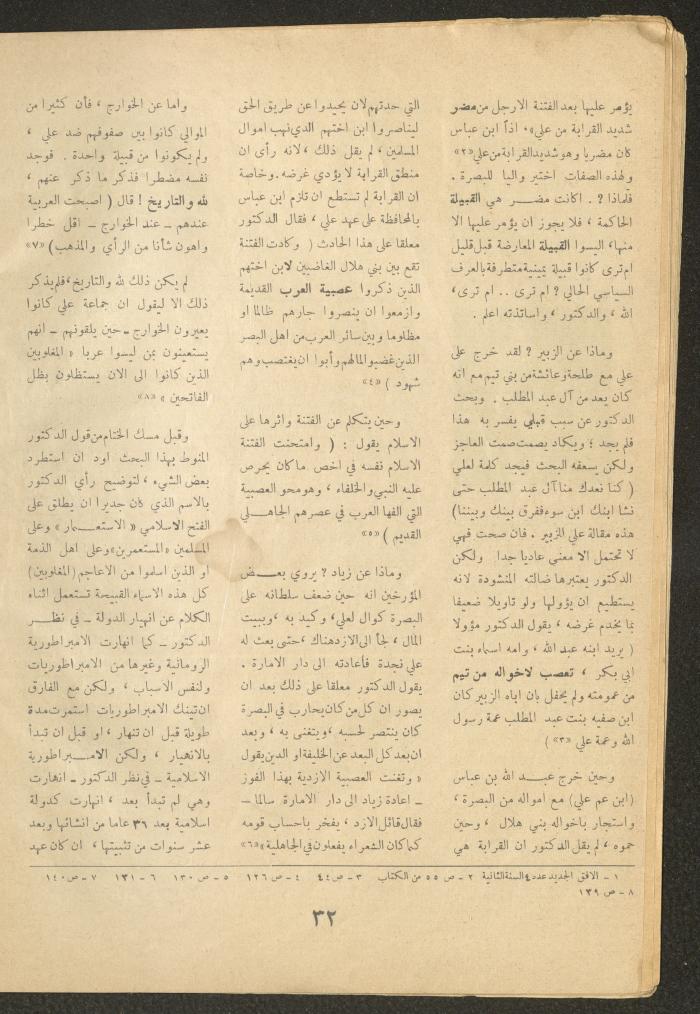 يؤمر عليها بعد الفتنة الارجل من مضر
شديد القرابة من علي» . اذاً ابن عباس
كان مضريا وهو شديد القرابة من علي «٢»
ولهذه الصفات اختير واليا للبصرة .
فلماذا ? . اكانت مضر هي القبيلة
الحاكمة ، فلا يجوز ان يؤمر عليها الا
منها، اليسوا القبيلة المعارضة قبل قليل
ام ترى كانوا قبيلة يمينية متطرفة بالعرف
السياسي الحالي ? ام ترى .. ام ترى،
الله ، والدكتور ، واساتذته اعلم .
وماذا عن الزبير ? لقد خرج على
علي مع طلحة وعائشة من بني تيم مع انه
كان يعد من آل عبد المطلب . وبحث
الدكتور عن سبب قبلي يفسر به هذا
فلم يجد ؛ ويكاد يصمت صمت العاجز
ولكن يسعفه البحث فيجد كلمة لعلي
( كنا نعدك منا آل عبد المطلب حتى
نشا ابنك ابن سوء ففرق بينك وبيننا)
هذه مقالة علي الزبير . فان صحت فهي
لا تحتمل الا معنى عاديا جدا ولكن
الدكتور يعتبرها ضالته المنشودة لانه
يستطيع ان يؤولها ولو تاويلا ضعيفا
بما يخدم غرضه ، يقول الدكتور مؤولا
( يريد ابنه عبد الله ، وامه اسماء بنت
ابي بكر ، تعصب لاخواله من تيم
من عمومته ولم يحفل بان اباه الزبير كان
ابن صفيه بنت عبد المطلب عمة رسول
الله وعمة علي «٣» )
وحين خرج عبد الله بن عباس
(ابن عم علي) مع امواله من البصرة ،
واستجار باخواله بني هلال ، وحين
حموه ، لم يقل الدكتور ان القرابة هي
التي حدتهم لان يحيدوا عن طريق الحق
ليناصروا ابن اختهم الذي نهب اموال
المسلمين ، لم يقل ذلك ، لانه رأى ان
منطق القرابة لا يؤدي غرضه. وخاصة
ان القرابة لم تستطع ان تلزم ابن عباس
بالمحافظة على عهد علي ، فقال الدكتور
معلقا على هذا الحادث ( وكادت الفتنة
تقع بين بني هلال الغاضبين لابن اختهم
الذين ذكروا عصبية العرب القديمة
وازمعوا ان ينصروا جارهم ظالما او
مظلوما وبين سائر العرب من اهل البصر
الذين غضبوا لمالهم وأبوا ان يغتصب وهم
شهود ) «٤»
وحين يتكلم عن الفتنة واثرها على
الاسلام يقول : ( وامتحنت الفتنة
الاسلام نفسه في اخص ما كان يحرص
عليه النبي والخلفاء ، وهو محو العصبية
التي الفها العرب في عصرهم الجاهلي
القديم ) «٥»
وماذا عن زياد ? يروي بعض
المؤرخين انه حين ضعف سلطانه على
البصرة كوال لعلي، وكيد به ، وببيت
المال ، لجأ الى الازد هناك ، حتى بعث له
علي نجدة فأعادته الى دار الامارة .
يقول الدكتور معلقا على ذلك بعد ان
يصور ان كل من كان يحارب في البصرة
كان ينتصر لحسبه ، ويتغنى به ، وبعد
ان بعد كل البعد عن الخليفة او الدين يقول
« وتغنت العصبية الازدية بهذا الفوز
ـ اعادة زياد الى دار الامارة سالما ـ
فقال قائل الازد ، يفخر باحساب قومه
كما كان الشعراء يفعلون في الجاهلية» «٦»
واما عن الخوارج ، فأن كثيرا من
الموالي كانوا بين صفوفهم ضد علي ،
ولم يكونوا من قبيلة واحدة . فوجد
نفسه مضطرا فذكر ما ذكر عنهم ،
لله والتاريخ ! قال ( اصبحت العربية
عندهم ـ عند الخوارج ـ اقل خطرا
واهون شأنا من الرأي والمذهب) «٧»
لم يكن ذلك لله والتاريخ، فلم يذكر
ذلك الا ليقول ان جماعة علي كانوا
يعيرون الخوارج ـ حين يلقونهم ـ انهم
يستعينون بمن ليسوا عربا « المغلوبين
الذين كانوا الى الان يستظلون بظل
الفاتحين » «٨»
وقبل مسك الختام من قول الدكتور
المنوط بهذا البحث اود ان استطرد
بعض الشيء ، لتوضيح رأي الدكتور
بالاسم الذي كان جديرا ان يطلق على
الفتح الاسلامي « الاستعمار » وعلى
المسلمين «المستعمرين» وعلى اهل الذمة
او الذين اسلموا من الاعاجم (المغلوبين)
كل هذه الاسماء القبيحة تستعمل اثناء
الكلام عن انهيار الدولة ـ في نظر
الدكتور ـ كما انهارت الامبراطورية
الرومانية وغيرها من الامبراطوريات
ولنفس الاسباب ، ولكن مع الفارق
ان تينك الامبراطوريات استمرت مدة
طويلة قبل ان تنهار ، او قبل ان تبدأ
بالانهيار ، ولكن الامبراطورية
الاسلامية ـ في نظر الدكتور ـ انهارت
وهي لم تبدأ بعد ، انهارت كدولة
اسلامية بعد ٣٦ عاما من انشائها وبعد
عشر سنوات من تثبيتها ، ان كان عهد
١ ـ الافق الجديد عدد ٤ السنة الثانية ٢ ـ ص ٥٥ من الكتاب ٣ ـ ص ٤٤ ٤ ـ ص ١٢٦ ٥ ـ ص ١٣٠ ٦ ـ ١٣١ ٧ ـ ص ١٤٠
٨ ـ ص ١٣٩
٣٢